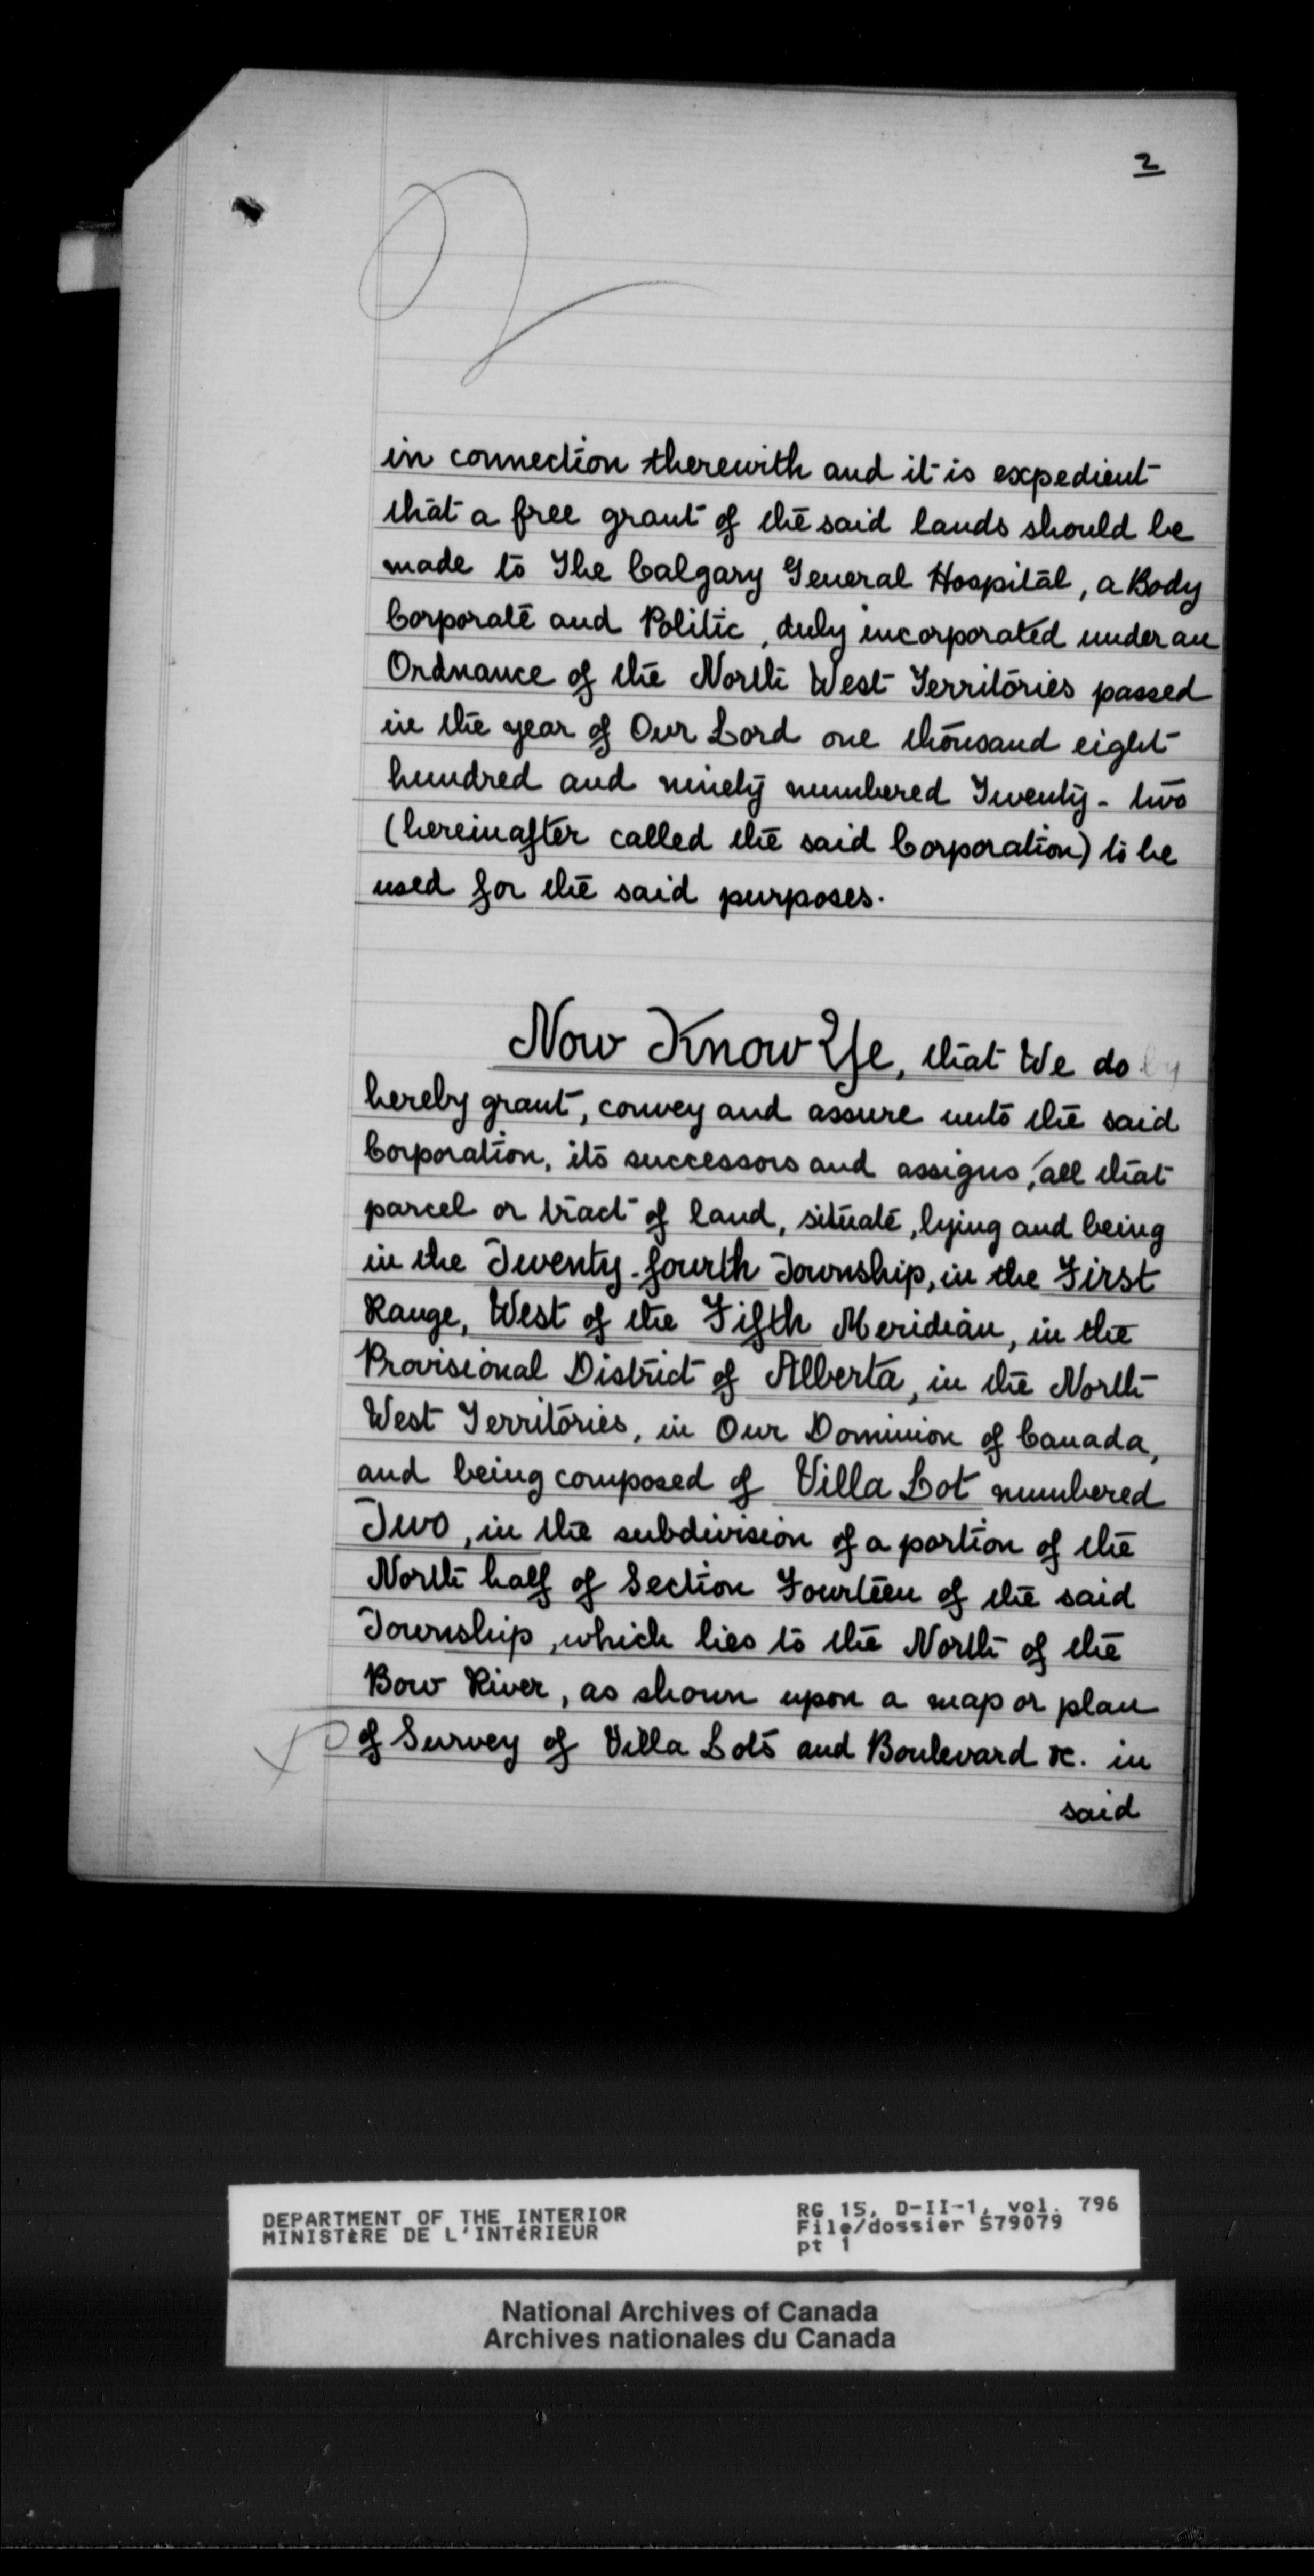 2
in connection therewith and it is expedient
that a free grant of the said lands should be
made to The Calgary General Hospital, a Body
Corporate and Politic, duly incorporated under an
Ordnance of the North West Territories passed
in the year of Our Lord one thousand eight
hundred and ninety numbered Twenty-two
(hereinafter called the said Corporation) to be
used for the said purposes.
Now Know Ye, that We do
hereby grant, convey and assure unto the said
Corporation, its successors and assigns, all that
parcel or tract of land, situate, lying and being
in the Twenty-fourth Township, in the First
Range, West of the Fifth Meridian, in the
Provisional District of Alberta, in the North
West Territories, in Our Dominion of Canada,
and being composed of Villa Lot numbered
Two, in the subdivision of a portion of the
North half of Section Fourteen of the said
Township, which lies to the North of the
Bow River, as shown upon a map or plan
of Survey of Villa Lots and Boulevard &c. in
said
DEPARTMENT OF THE INTERIOR
MINISTÈRE DE L'INTÉRIEUR
RG 15, D-II-1, vol. 796
File/dossier 579079
pt 1
National Archives of Canada
Archives nationales du Canada